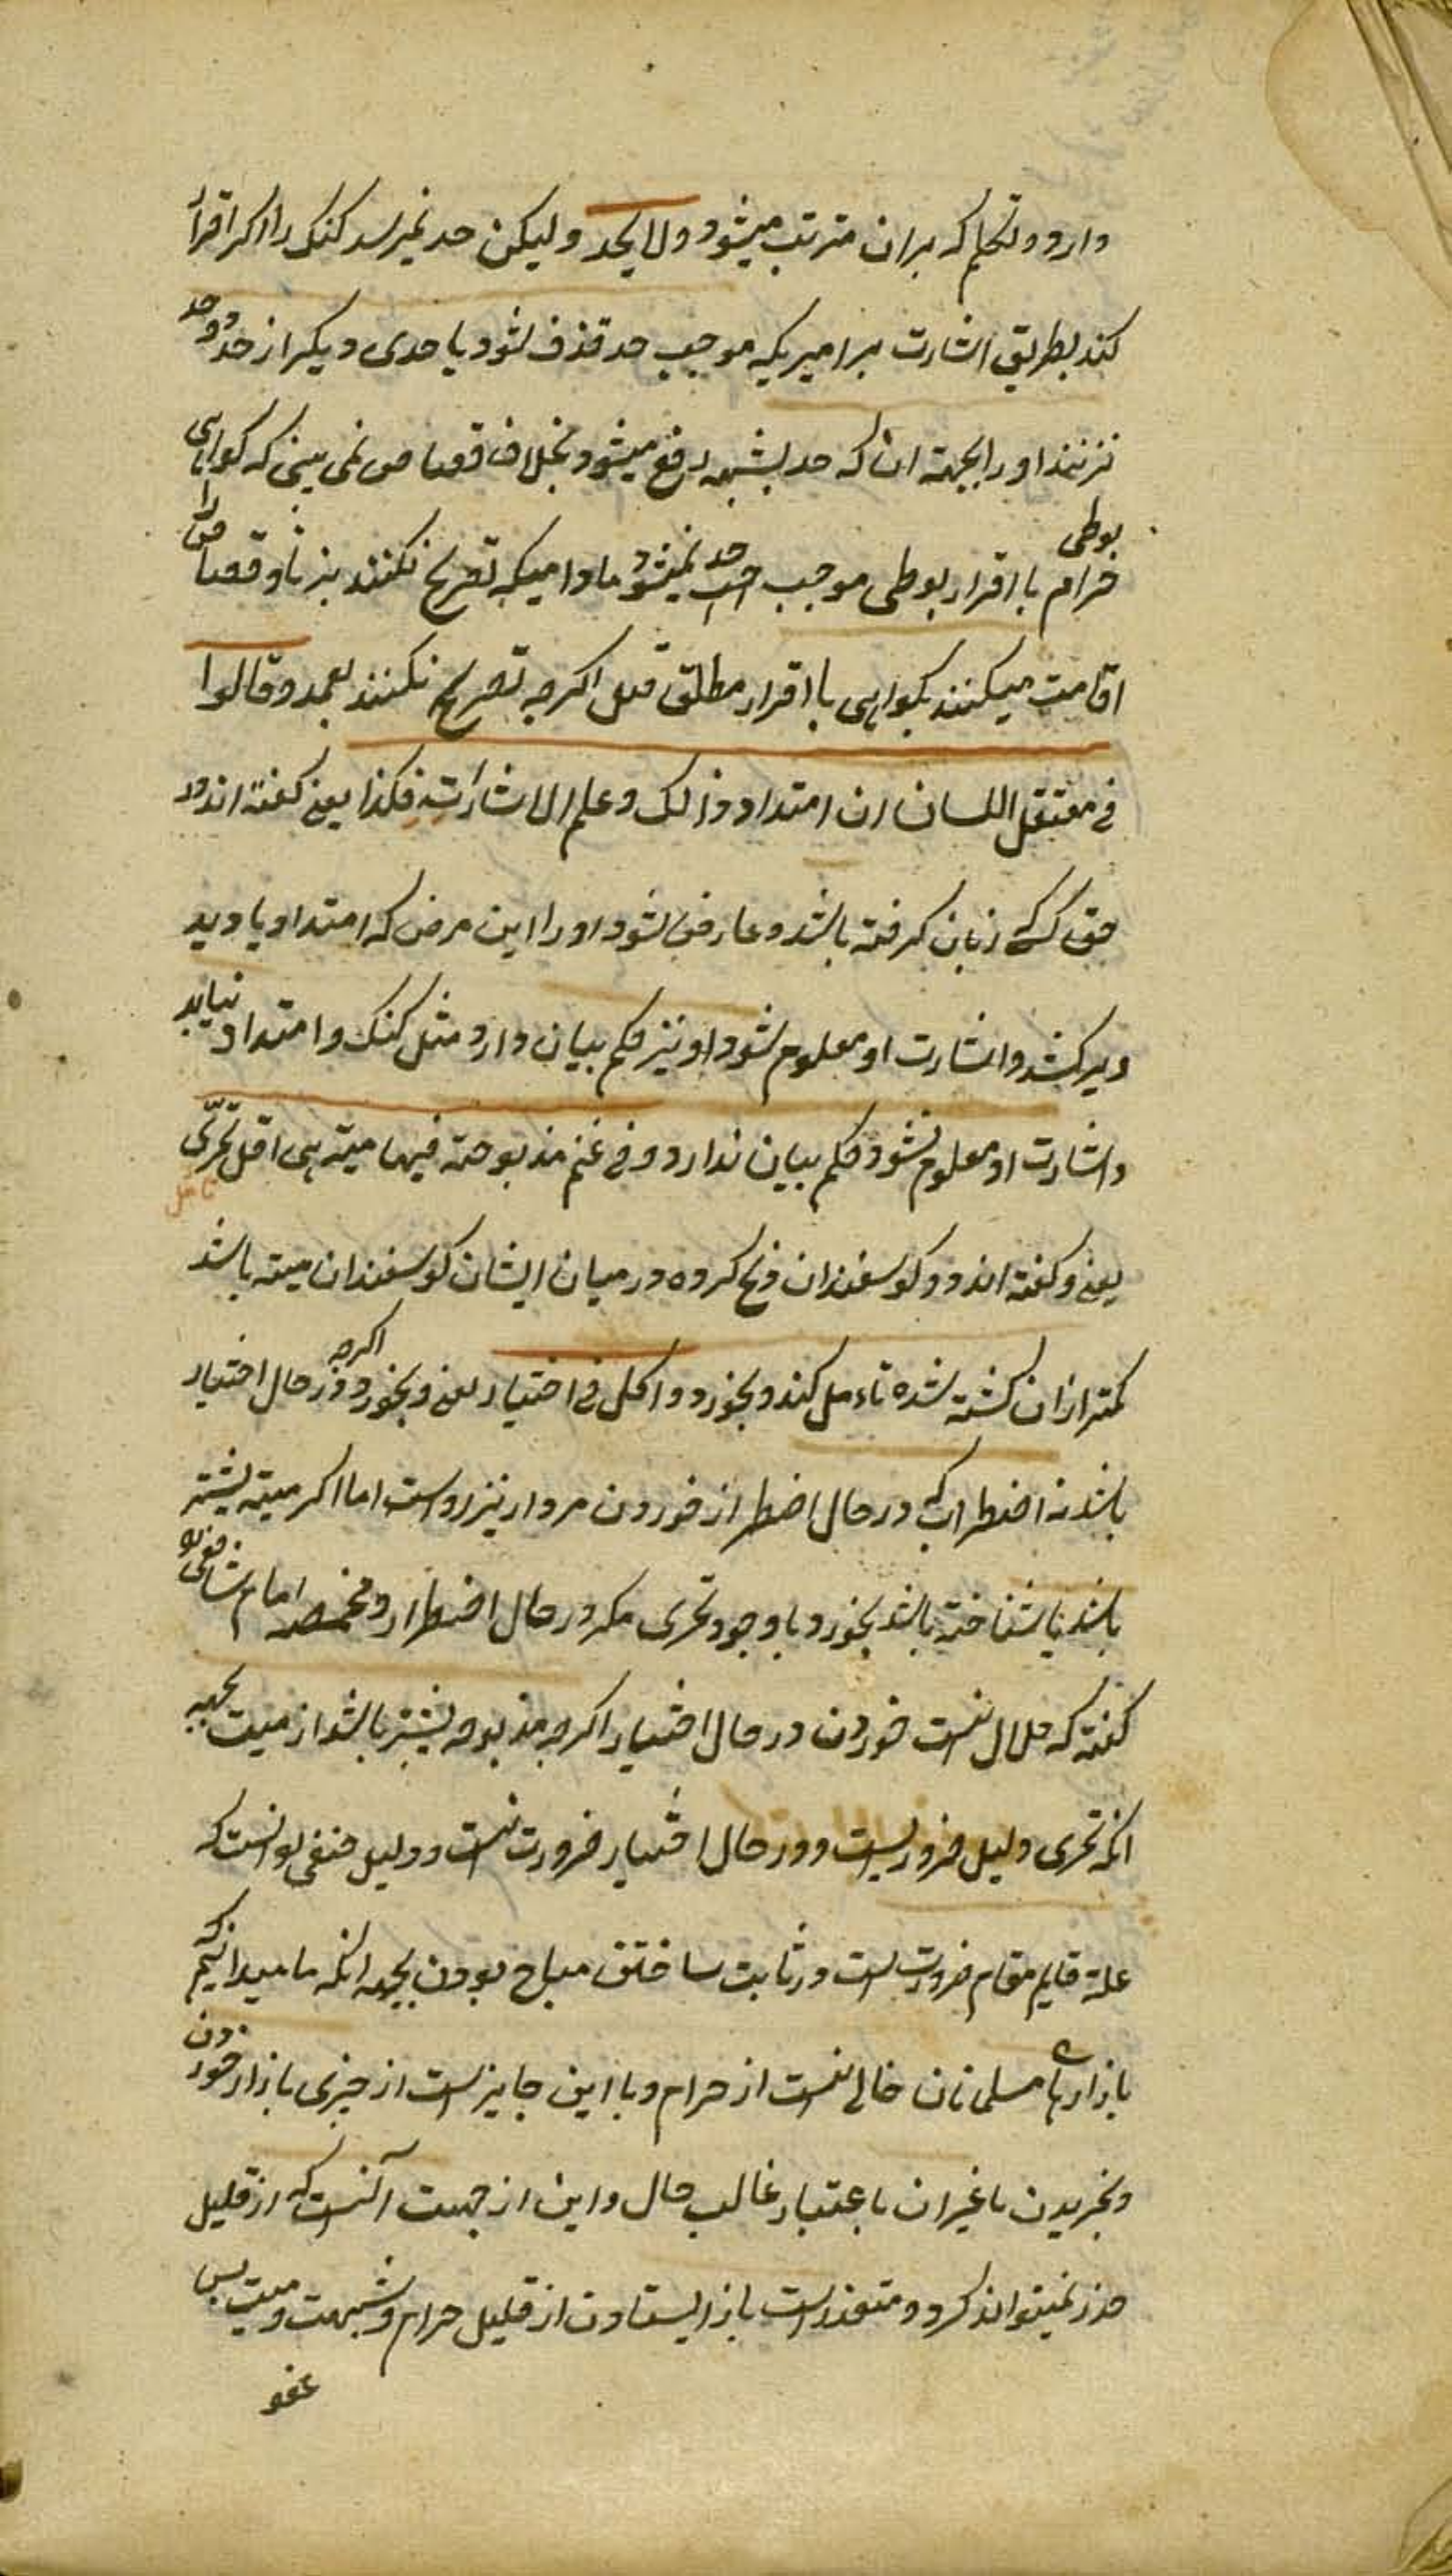 دارد و تحکیم که بران مترتب میشود ولا یحد ولیکن حد نمیرسد کنک را اکر اقرار
کند بطریق اشارت بر امیریکه موجب حد قذف شود یا حدی دیکر از حدود
نزنند او را بجهة ان که حد بشبهه دفع میشود بخلاف قصاص نمی بینی که کواهی بوطی
حرام یا اقرار بوطی موجب حد نمیشود مادامیکه تصریح نکنند بزنا و قصاص را
اقامت میکنند بکواهی یا اقرار مطلق قتل اکرچه تصریح نکنند بعمد وقالوا
فی معتقل اللسان ان امتداد ذالک وعلم الاشارته فکذا یعنی کفته اند در
حق کسی که زبان کرفته باشد و عارض شود او را این مرض که امتداد یابد
دیر کشد و اشارت او معلوم شود او نیز حکم بیان دارد مثل کنک و امتداد نیابد
و اشارت او معلوم نشود حکم بیان ندارد وفی غنم مذبوحة فیها میتة هی اقل تحرّی
یعنی و کفته اند در کوسفندان ذبح کرده در میان ایشان کوسفندان میته باشد
کمتر ازان کشته شده تاءمل کند و بخورد واکل فی اختیار یعنی و بخورد اکرچه در حال اختیار
باشد نه اضطراب که در حال اضطرار خوردن مردار نیز رواست اما اکر میته بیشتر
باشد یا شناخته باشد نخورد با وجود تحری مکر در حال اضطرار و مخمصه امام شافعی
کفته که حلال نیست خوردن در حال اختیار اکرچه مذبوحه بیشتر باشد از میت بجهه
انکه تحری دلیل ضروریست و در حال اختیار ضرورت نیست و دلیل حنفی انست که
غلبه قایم مقام ضرورت است در ثابت ساختن مباح بودن بجهه انکه ما میدانیم که
بازارهای مسلمانان خالی نیست از حرام و با این جایز است از چیزی بازار خوردن
و بخریدن با غیر ان باعتبار غالب حال و این از جهت آنست که از قلیل
حذر نمیتواند کرد و متعذر است باز ایستادن از قلیل حرام و شبهت و میت پس
عفو